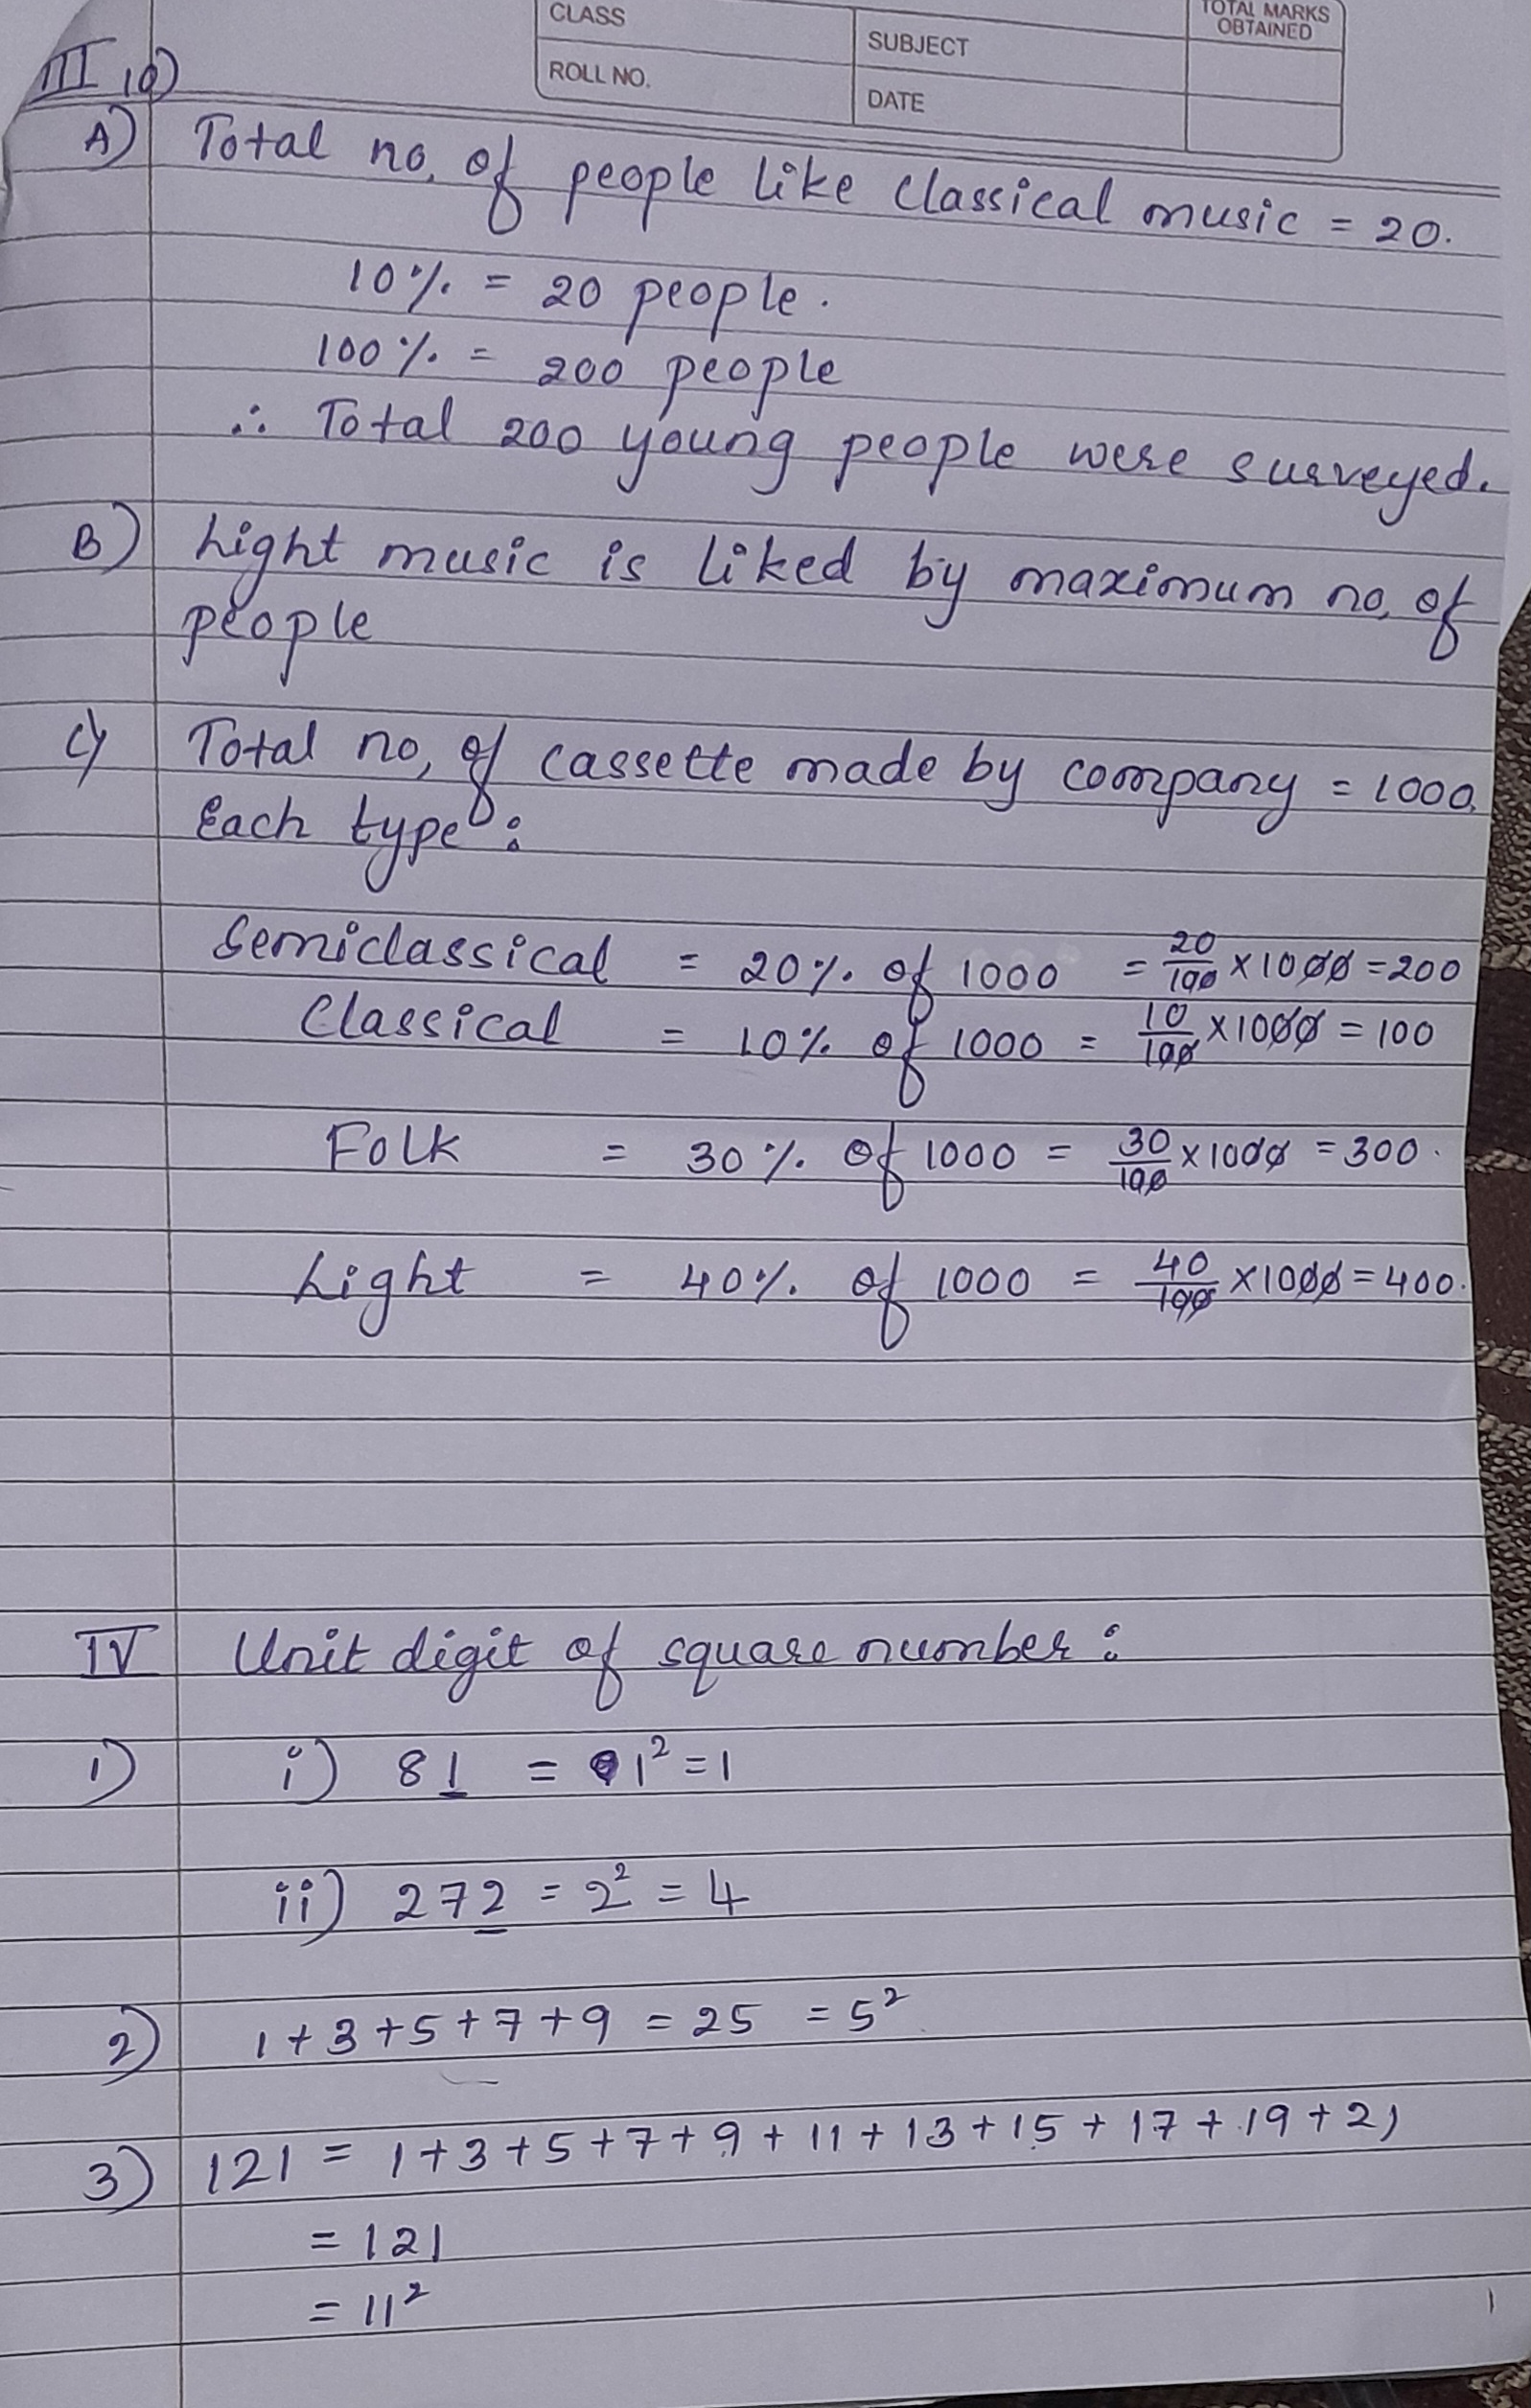 CLASS
SUBJECT
TOTAL MARKS OBTAINED
ROLL NO.
DATE
III 10)
A) Total no. of people like classical music = 20.
10% = 20 people.
100% = 200 people
∴ Total 200 young people were surveyed.
B) Light music is liked by maximum no. of
people
C) Total no. of cassette made by company = 1000.
Each type :
Semiclassical = 20% of 1000 = 20/100 × 1000 = 200
Classical = 10% of 1000 = 10/100 × 1000 = 100
Folk = 30% of 1000 = 30/100 × 1000 = 300.
Light = 40% of 1000 = 40/100 × 1000 = 400.
IV Unit digit of square number :
1) i) 81 = 1² = 1
ii) 272 = 2² = 4
2) 1+3+5+7+9 = 25 = 5²
3) 121 = 1+3+5+7+9+11+13+15+17+19+21
= 121
= 11²